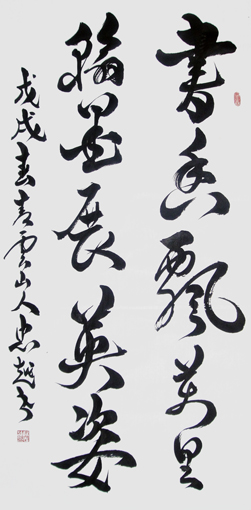 書香飄萬里
翰墨展英姿
戊戌春青雲山人忠越書